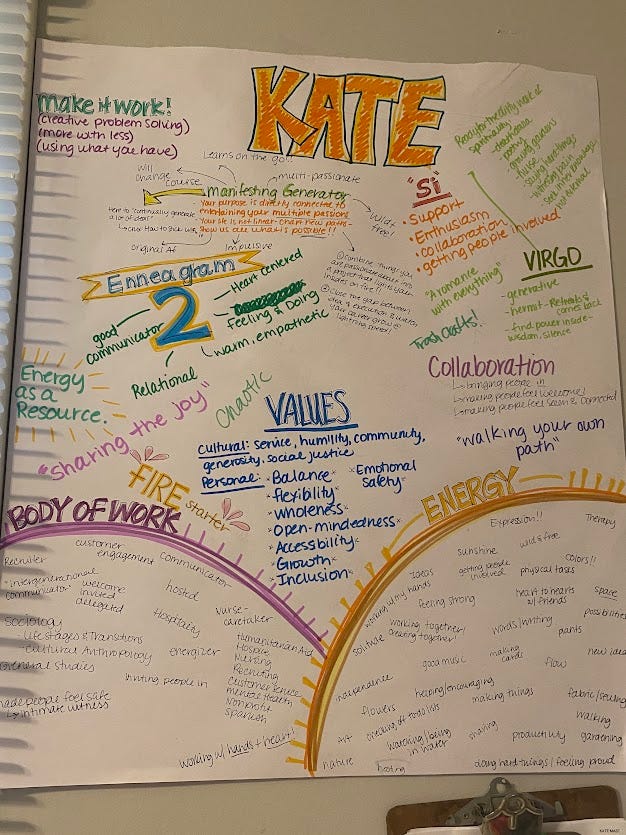 KATE
make it work!
(creative problem solving)
(more with less)
(using what you have)
Learns on the go!!
will change course
multi-passionate
manifesting Generator
Your purpose is directly connected to
embracing your multiple passions
Your life is not linear - chart new paths -
show us all what is possible!!
Wild & free!
Original AF
Impulsive
here to "continually generate
a lot of ideas"
"Si"
• Support
• Enthusiasm
• collaboration
• getting people involved
"A romance
with everything"
Trash crafts!
VIRGO
- generative
- hermit - Retreats &
comes back
- find power inside -
wisdom, silence
Enneagram
2
Heart centered
Feeling & Doing
warm, empathetic
Relational
good
communicator
Energy
as a
Resource.
"sharing the joy"
Chaotic
FIRE starter
Collaboration
↳ bringing people in
↳ making people feel welcome!
↳ making people feel seen & connected
"walking your own
path"
VALUES
Cultural: service, humility, community,
generosity, social justice
Personal: • Balance
• flexiblity
• wholeness
• open-mindedness
• Accessibility
• Growth
• Inclusion
• Emotional
safety
BODY OF WORK
Recruiter
customer
engagement
communicator
• intergenerational
communicator
welcome
invited
delegated
hosted
Hospitality
Sociology
- Life Stages & Transitions
- Cultural Anthropology
general studies
energizer
Nurse -
caretaker
Humanitarian Aid
Hospice
Nursing
Recruiting
Customer service
mental Health
Nonprofit
spanish
inviting people in
made people feel safe
↳ intimate witness
working w/ hands + heart!
ENERGY
Expression!!
Therapy
wild & free
sunshine
colors!!
Ideas
getting people
involved
physical tasks
working w/ my hands
feeling strong
heart to hearts
w/ friends
space
possibilities
words/writing
pants
working together/
creating together!
solitude
making
cards
new idea
good music
flow
independence
helping/encouraging
making things
fabric/sewing
flowers
walking
checking off todo lists
Art
watching/being
in water
sharing
productivity
gardening
nature
hosting
doing hard things / feeling proud